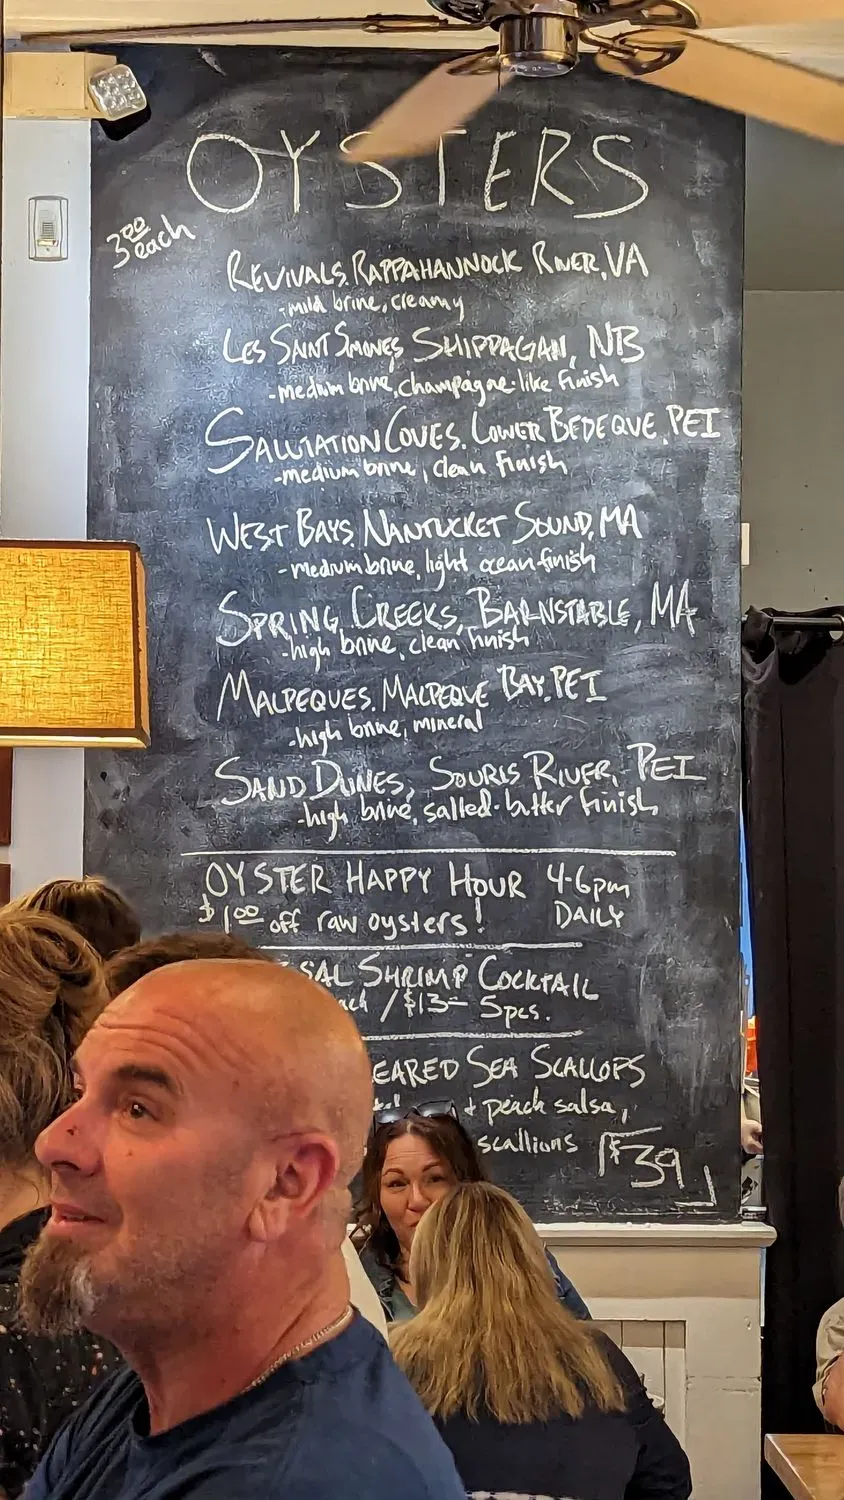 OYSTERS
3.00 each
REVIVALS, RAPPAHANNOCK RIVER, VA
-mild brine, creamy
LES SAINT SIMONS, SHIPPAGAN, NB
-medium brine, champagne-like finish
SALUTATION COVES, LOWER BEDEQUE, PEI
-medium brine, clean finish
WEST BAYS, NANTUCKET SOUND, MA
-medium brine, light ocean finish
SPRING CREEKS, BARNSTABLE, MA
-high brine, clean finish
MALPEQUES, MALPEQUE BAY, PEI
-high brine, mineral
SAND DUNES, SOURIS RIVER, PEI
-high brine, salted-butter finish
OYSTER HAPPY HOUR 4-6pm
$1.00 off raw oysters! DAILY
SHRIMP COCKTAIL
/ $13- 5pcs.
EARED SEA SCALLOPS
+ peach salsa,
scallions $39